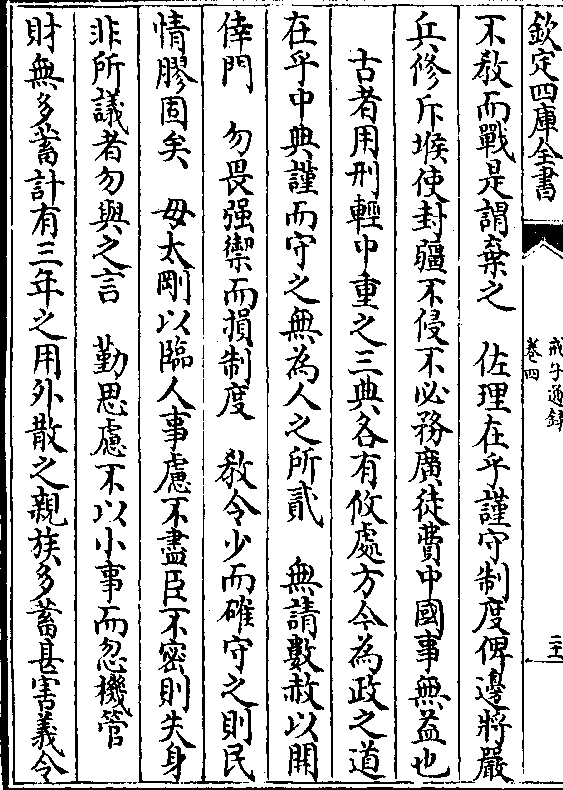 欽定四庫全書
戒子通録
卷四
二十一
不教而戰是謂棄之　佐理在乎謹守制度俾邊將嚴
兵修斥堠使封疆不侵不必務廣徒費中國事無益也
古者用刑輕中重之三典各有攸處方今為政之道
在乎中典謹而守之無為人之所貳　無請數赦以開
倖門　勿畏强禦而損制度　教令少而確守之則民
情膠固矣　毋太剛以臨人事慮不盡臣不密則失身
非所議者勿與之言　勤思慮不以小事而忽機管
財無多蓄計有三年之用外散之親族多蓄甚害義令